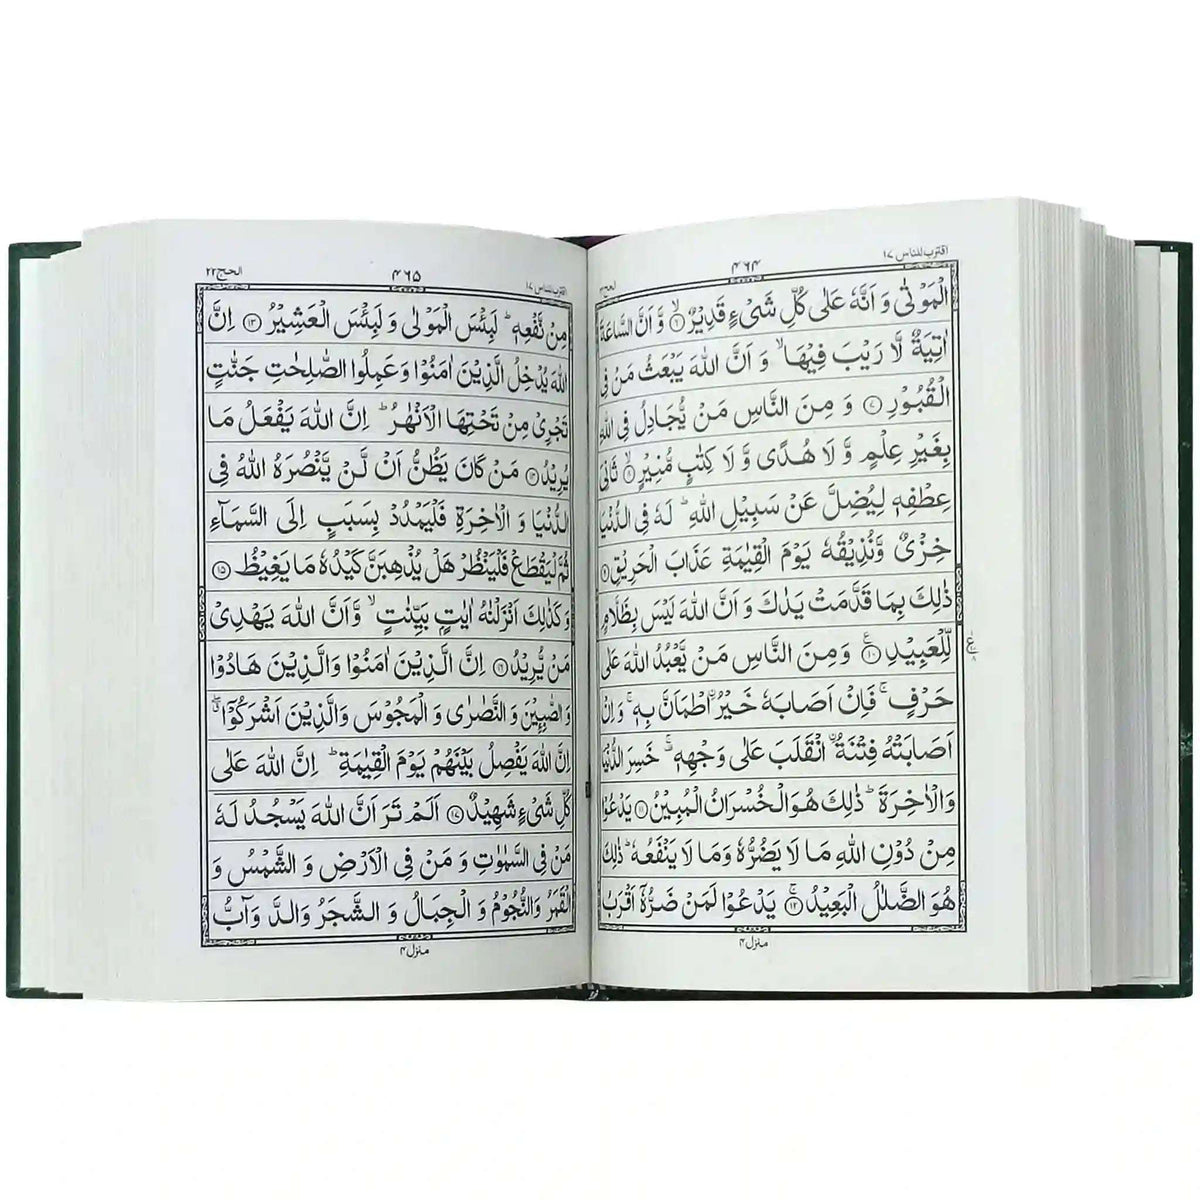 اقترب للناس ١٧
۴۶۴
الحج ٢٢
الۡمَوۡتٰی وَ اَنَّهٗ عَلٰی كُلِّ شَیۡءٍ قَدِیۡرٌ ۙ﴿٦﴾ وَّ اَنَّ السَّاعَةَ
اٰتِیَةٌ لَّا رَیۡبَ فِیۡهَا ۙ وَ اَنَّ اللّٰهَ یَبۡعَثُ مَنۡ فِی
الۡقُبُوۡرِ ﴿٧﴾ وَ مِنَ النَّاسِ مَنۡ یُّجَادِلُ فِی اللّٰهِ
بِغَیۡرِ عِلۡمٍ وَّ لَا هُدًی وَّ لَا كِتٰبٍ مُّنِیۡرٍ ۙ﴿٨﴾ ثَانِیَ
عِطۡفِهٖ لِیُضِلَّ عَنۡ سَبِیۡلِ اللّٰهِ ؕ لَهٗ فِی الدُّنۡیَا
خِزۡیٌ وَّنُذِیۡقُهٗ یَوۡمَ الۡقِیٰمَةِ عَذَابَ الۡحَرِیۡقِ ﴿٩﴾
ذٰلِكَ بِمَا قَدَّمَتۡ یَدٰكَ وَ اَنَّ اللّٰهَ لَیۡسَ بِظَلَّامٍ
لِّلۡعَبِیۡدِ ﴿١٠﴾ وَمِنَ النَّاسِ مَنۡ یَّعۡبُدُ اللّٰهَ عَلٰی
حَرۡفٍ ۚ فَاِنۡ اَصَابَهٗ خَیۡرُ ۨاطۡمَاَنَّ بِهٖ ۚ وَ اِنۡ
اَصَابَتۡهُ فِتۡنَةُ ۨانۡقَلَبَ عَلٰی وَجۡهِهٖ ۟ۚ خَسِرَ الدُّنۡیَا
وَالۡاٰخِرَةَ ؕ ذٰلِكَ هُوَ الۡخُسۡرَانُ الۡمُبِیۡنُ ﴿١١﴾ یَدۡعُوۡا
مِنۡ دُوۡنِ اللّٰهِ مَا لَا یَضُرُّهٗ وَمَا لَا یَنۡفَعُهٗ ؕ ذٰلِكَ
هُوَ الضَّلٰلُ الۡبَعِیۡدُ ۚ﴿١٢﴾ یَدۡعُوۡا لَمَنۡ ضَرُّهٗۤ اَقۡرَبُ
منزل ۴
اقترب للناس ١٧
۴۶۵
الحج ٢٢
مِنۡ نَّفۡعِهٖ ؕ لَبِئۡسَ الۡمَوۡلٰی وَ لَبِئۡسَ الۡعَشِیۡرُ ﴿١٣﴾ اِنَّ
اللّٰهَ یُدۡخِلُ الَّذِیۡنَ اٰمَنُوۡا وَعَمِلُوا الصّٰلِحٰتِ جَنّٰتٍ
تَجۡرِیۡ مِنۡ تَحۡتِهَا الۡاَنۡهٰرُ ؕ اِنَّ اللّٰهَ یَفۡعَلُ مَا
یُرِیۡدُ ﴿١٤﴾ مَنۡ كَانَ یَظُنُّ اَنۡ لَّنۡ یَّنۡصُرَهُ اللّٰهُ فِی
الدُّنۡیَا وَ الۡاٰخِرَةِ فَلۡیَمۡدُدۡ بِسَبَبٍ اِلَی السَّمَآءِ
ثُمَّ لۡیَقۡطَعۡ فَلۡیَنۡظُرۡ هَلۡ یُذۡهِبَنَّ كَیۡدُهٗ مَا یَغِیۡظُ ﴿١٥﴾
وَ كَذٰلِكَ اَنۡزَلۡنٰهُ اٰیٰتٍۭ بَیِّنٰتٍ ۙ وَّ اَنَّ اللّٰهَ یَهۡدِیۡ
مَنۡ یُّرِیۡدُ ﴿١٦﴾ اِنَّ الَّذِیۡنَ اٰمَنُوۡا وَالَّذِیۡنَ هَادُوۡا
وَ الصّٰبِـِٕیۡنَ وَ النَّصٰرٰی وَ الۡمَجُوۡسَ وَالَّذِیۡنَ اَشۡرَكُوۡۤا ٭ۖ
اِنَّ اللّٰهَ یَفۡصِلُ بَیۡنَهُمۡ یَوۡمَ الۡقِیٰمَةِ ؕ اِنَّ اللّٰهَ عَلٰی
كُلِّ شَیۡءٍ شَهِیۡدٌ ﴿١٧﴾ اَلَمۡ تَرَ اَنَّ اللّٰهَ یَسۡجُدُ لَهٗ
مَنۡ فِی السَّمٰوٰتِ وَ مَنۡ فِی الۡاَرۡضِ وَ الشَّمۡسُ وَ
الۡقَمَرُ وَالنُّجُوۡمُ وَ الۡجِبَالُ وَ الشَّجَرُ وَالدَّ وَآبُّ
منزل ۴